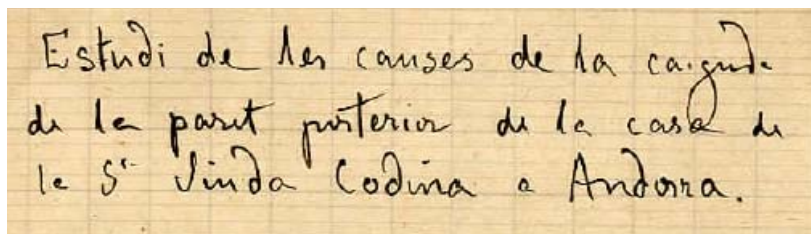 Estudi de les causes de la caiguda
de la paret posterior de la casa de
la Sra Viuda Codina a Andorra.